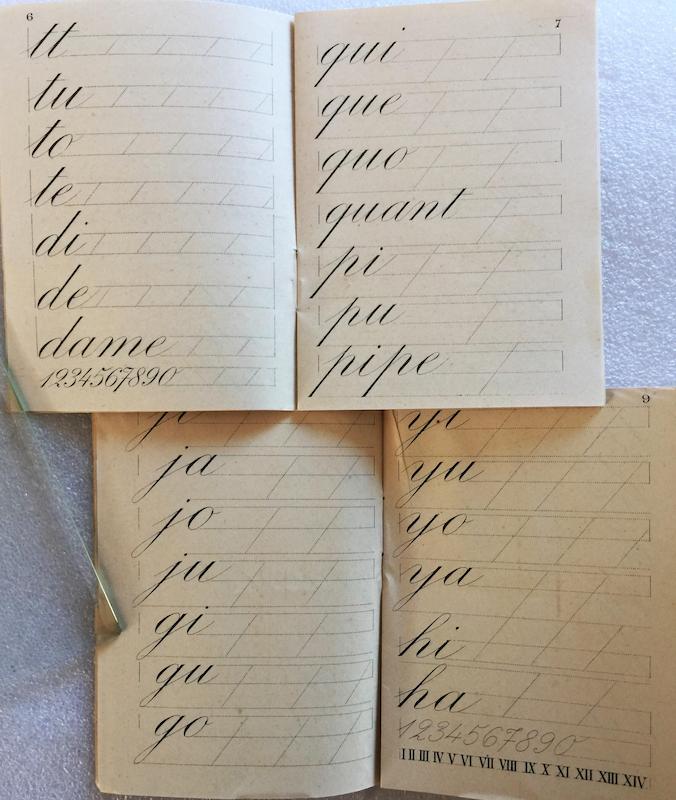 6
tt
tu
to
te
di
de
dame
1234567890
7
qui
que
quo
quant
pi
pu
pipe
ji
ja
jo
ju
gi
gu
go
9
yi
yu
yo
ya
hi
ha
1234567890
I II III IV V VI VII VIII IX X XI XII XIII XIV